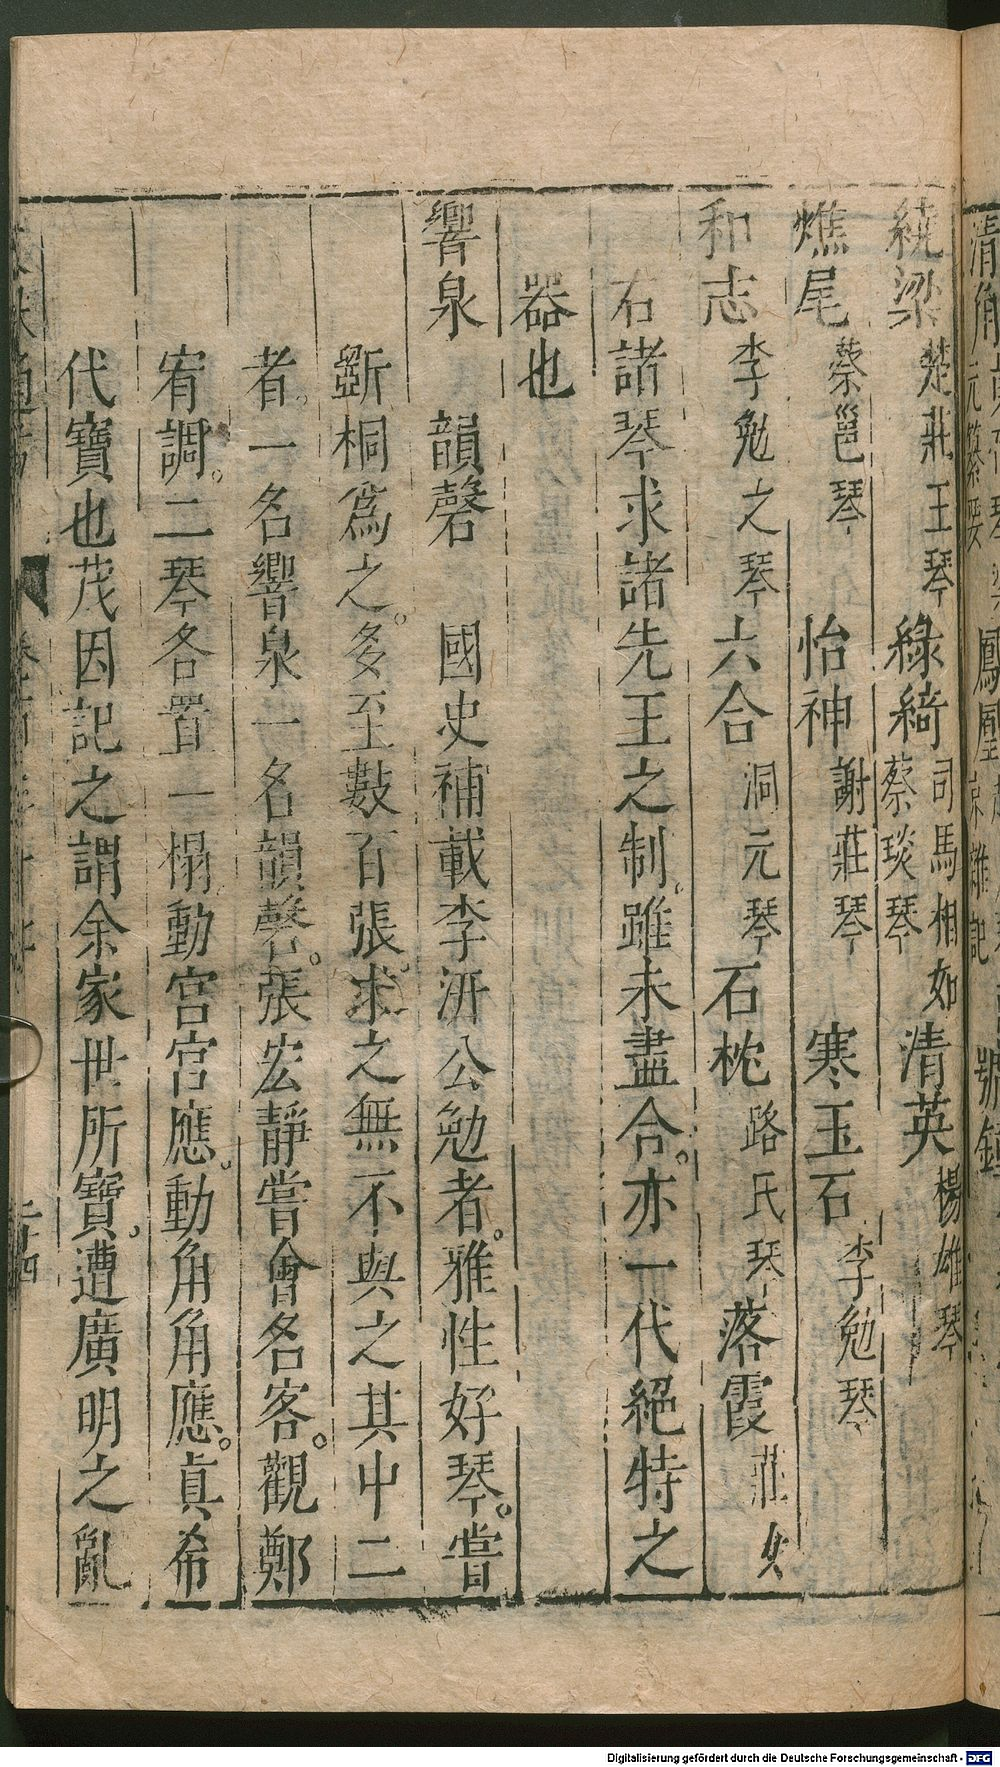 繞梁楚莊王琴 綠綺司馬相如 蔡琰琴 清英楊雄琴
燋尾蔡邕琴 怡神謝莊琴 寒玉石李勉琴
和志李勉之琴 六合洞元琴 石枕路氏琴 落霞莊女
右諸琴求諸先王之制。雖未盡合。亦一代絕特之
器也
響泉 韻磬 國史補載李汧公勉者。雅性好琴。嘗
斵桐爲之。多至數百張。求之無不與之其中二
者。一名響泉一名韻磬。張宏靜嘗會名客。觀鄭
宥調。二琴各置一榻動宮宮應。動角角應。眞希
代寶也茂因記之謂余家世所寶。遭廣明之亂
二十四
Digitalisierung gefördert durch die Deutsche Forschungsgemeinschaft - DFG